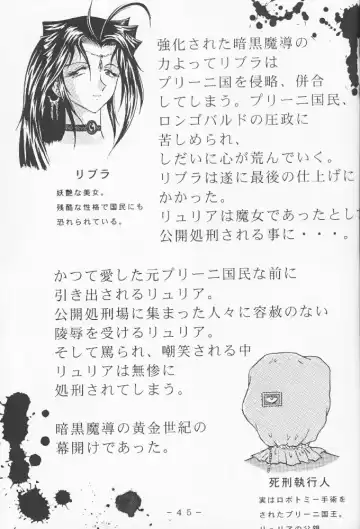 強化された暗黒魔導の
力よってリブラは
プリーニ国を侵略、併合
してしまう。プリーニ国民、
ロンゴバルドの圧政に
苦しめられ、
しだいに心が荒んでいく。
リブラは遂に最後の仕上げに
かかった。
リュリアは魔女であったとし
公開処刑される事に・・・。
リブラ
妖艶な美女。
残酷な性格で国民にも
恐れられている。
かつて愛した元プリーニ国民な前に
引き出されるリュリア。
公開処刑場に集まった人々に容赦のない
陵辱を受けるリュリア。
そして罵られ、嘲笑される中
リュリアは無惨に
処刑されてしまう。
暗黒魔導の黄金世紀の
幕開けであった。
死刑執行人
実はロボトミー手術を
されたプリーニ国王。
リュリアの父親
－４５－